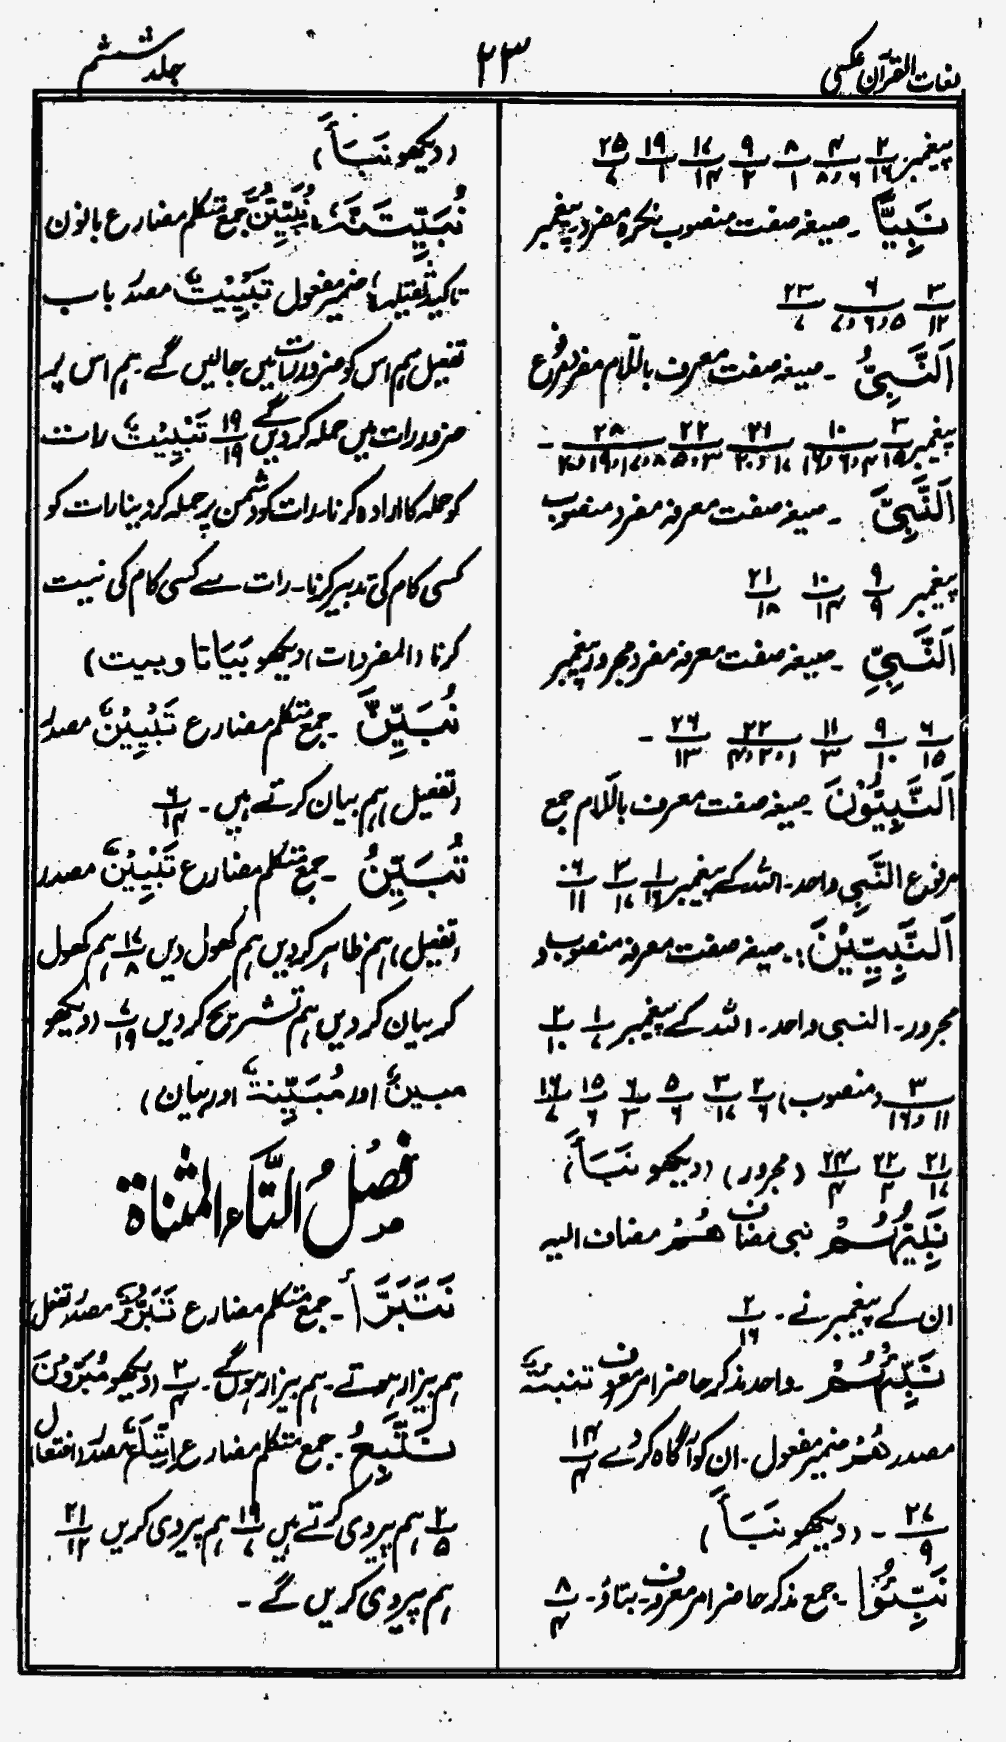 لغات القرآن عکسی
۲۳
جلد ششم
پیغمبر ۲/۱۶ ۴/۶و۸ ۸/۱ ۹/۲ ۱۷/۱۴ ۱۹/۱ ۲۵/۷
نَبِیًّا ۔ صیغہ صفت منصوب نکرہ مفرد، پیغمبر
۳/۱۲ ۶/۵و۶و۷ ۲۳/۷
اَلنَّبِیُّ ۔ صیغہ صفت معرف باللّام مفرد مرفوع
پیغمبر ۳/۱۵ ۱۰/۴و۶و۱۶ ۲۱/۱۷و۲۰ ۲۲/۳و۵ ۲۸/۸و۷و۱۹و۲۰ ۔
اَلنَّبِیَّ ۔ صیغہ صفت معرفہ مفرد منصوب
پیغمبر ۹/۹ ۱۰/۱۴ ۲۱/۱۸
اَلنَّبِیِّ ۔ صیغہ صفت معرفہ مفرد مجرور پیغمبر
۶/۱۵ ۹/۱۰ ۱۱/۳ ۲۲/۱و۲و۴ ۲۶/۱۳ ۔
اَلنَّبِیُّوْنَ ۔ صیغہ صفت معرف باللّام جمع
مرفوع النَّبِی واحد۔ اللہ کے پیغمبر ۱/۱۶ ۳/۱۷ ۶/۱۱
اَلنَّبِیِّیْنَ ۔ صیغہ صفت معرفہ منصوب و
مجرور۔ النبی واحد۔ اللہ کے پیغمبر ۱/۷ ۲/۱۰
۳/۱۱و۱۶ (منصوب) ۲/۶ ۳/۱۷ ۵/۶ ۶/۳ ۱۵/۶ ۱۶/۷
۲۱/۱۷ ۲۲/۲ ۲۴/۴ (مجرور) (دیکھو نَبَأَ)
نَبِیُّہُمْ نبی مضاف ھُمْ مضاف الیہ
ان کے پیغمبر نے ۔ ۲/۱۶
نَبِّئْہُمْ ۔ واحد مذکر حاضر امر معروف تنبئۃٌ
مصدر ھُمْ ضمیر مفعول۔ ان کو آگاہ کر دے ۱۴/۴
۲۷/۹ ۔ (دیکھو نَبَأَ)
نَبِّئُوْا ۔ جمع مذکر حاضر امر معروف۔ بتاؤ۔ ۸/۴
(دیکھو نَبَأَ)
نُبَیِّتَنَّہٗ ۔ نُبَیِّتَنَّ جمع متکلم مضارع بانون
تاکید ثقیلہ، ہٗ ضمیر مفعول تَبْیِیْتٌ مصدر باب
تفعیل ہم اس کو ضرور رات میں جالیں گے ۔ ہم اس پر
ضرور رات میں حملہ کر دیں گے ۱۹/۱۹ تَبْیِیْتٌ رات
کو حملہ کا ارادہ کرنا۔ رات کو دشمن پر حملہ کر دینا رات کو
کسی کام کی تدبیر کرنا۔ رات سے کسی کام کی نیت
کرنا (المفردات) (دیکھو بَیَاتًا و بیت)
نُبَیِّنَّ ۔ جمع متکلم مضارع تَبْیِیْنٌ مصدر
(تفعیل) ہم بیان کرتے ہیں ۔ ۶/۱۴
نُبَیِّنُ ۔ جمع متکلم مضارع تَبْیِیْنٌ مصدر
(تفعیل) ہم ظاہر کر دیں ہم کھول دیں ۱۷/۸ ہم کھول
کر بیان کر دیں ہم تشریح کر دیں ۷/۱۹ (دیکھو
مبینٌ اور مُبَیِّنۃٌ اور بیان)
فصلُ التّاء المثناۃ
نَتَبَرَّأُ ۔ جمع متکلم مضارع تَبَرُّءٌ مصدر تفعل
ہم بیزار ہوتے ۔ ہم بیزار ہوں گے ۔ ۲/۴ (دیکھو مُبَرَّءُوْنَ
نَتَّبِعُ ۔ جمع متکلم مضارع اِتِّبَاعٌ مصدر (افتعال)
۲/۵ ہم پیروی کرتے ہیں ۱۹/۷ ہم پیروی کریں ۲۱/۱۲
ہم پیروی کریں گے ۔